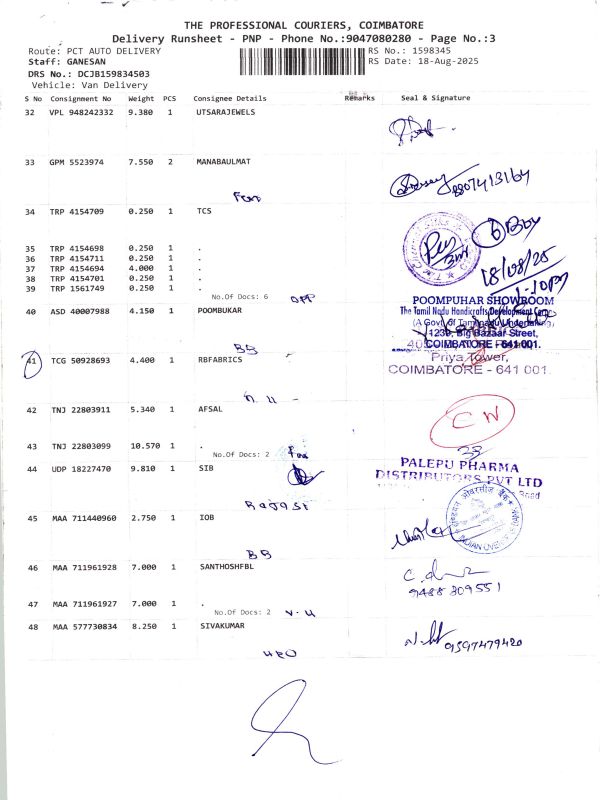 THE PROFESSIONAL COURIERS, COIMBATORE
Delivery Runsheet - PNP - Phone No.:9047080280 - Page No.:3
Route: PCT AUTO DELIVERY RS No.: 1598345
Staff: GANESAN RS Date: 18-Aug-2025
DRS No.: DCJB159834503
Vehicle: Van Delivery
S No Consignment No Weight PCS Consignee Details Remarks Seal & Signature
32 VPL 948242332 9.380 1 UTSARAJEWELS
33 GPM 5523974 7.550 2 MANABAULMAT
8807413164
34 TRP 4154709 0.250 1 TCS
6 Box
35 TRP 4154698 0.250 1 .
36 TRP 4154711 0.250 1 .
37 TRP 4154694 4.000 1 .
38 TRP 4154701 0.250 1 .
39 TRP 1561749 0.250 1 .
18/08/25
1-10pm
No.Of Docs: 6 OPP
40 ASD 40007988 4.150 1 POOMBUKAR
POOMPUHAR SHOWROOM
The Tamil Nadu Handicrafts Development Corp
(A Govt. of Tamilnadu Undertaking)
1239, Big Bazaar Street,
COIMBATORE - 641 001.
BB
41 TCG 50928693 4.400 1 RBFABRICS
Priya Tower,
COIMBATORE - 641 001.
42 TNJ 22803911 5.340 1 AFSAL
43 TNJ 22803099 10.570 1 .
No.Of Docs: 2
44 UDP 18227470 9.810 1 SIB
PALEPU PHARMA
DISTRIBUTORS PVT LTD
Road
45 MAA 711440960 2.750 1 IOB
BB
46 MAA 711961928 7.000 1 SANTHOSHFBL
9488809551
47 MAA 711961927 7.000 1 .
No.Of Docs: 2 V.U
48 MAA 577730834 8.250 1 SIVAKUMAR
9597479420